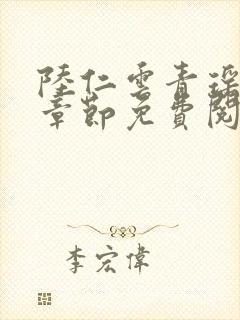 陸仁雲青瑤
章節免費閱
李宏偉